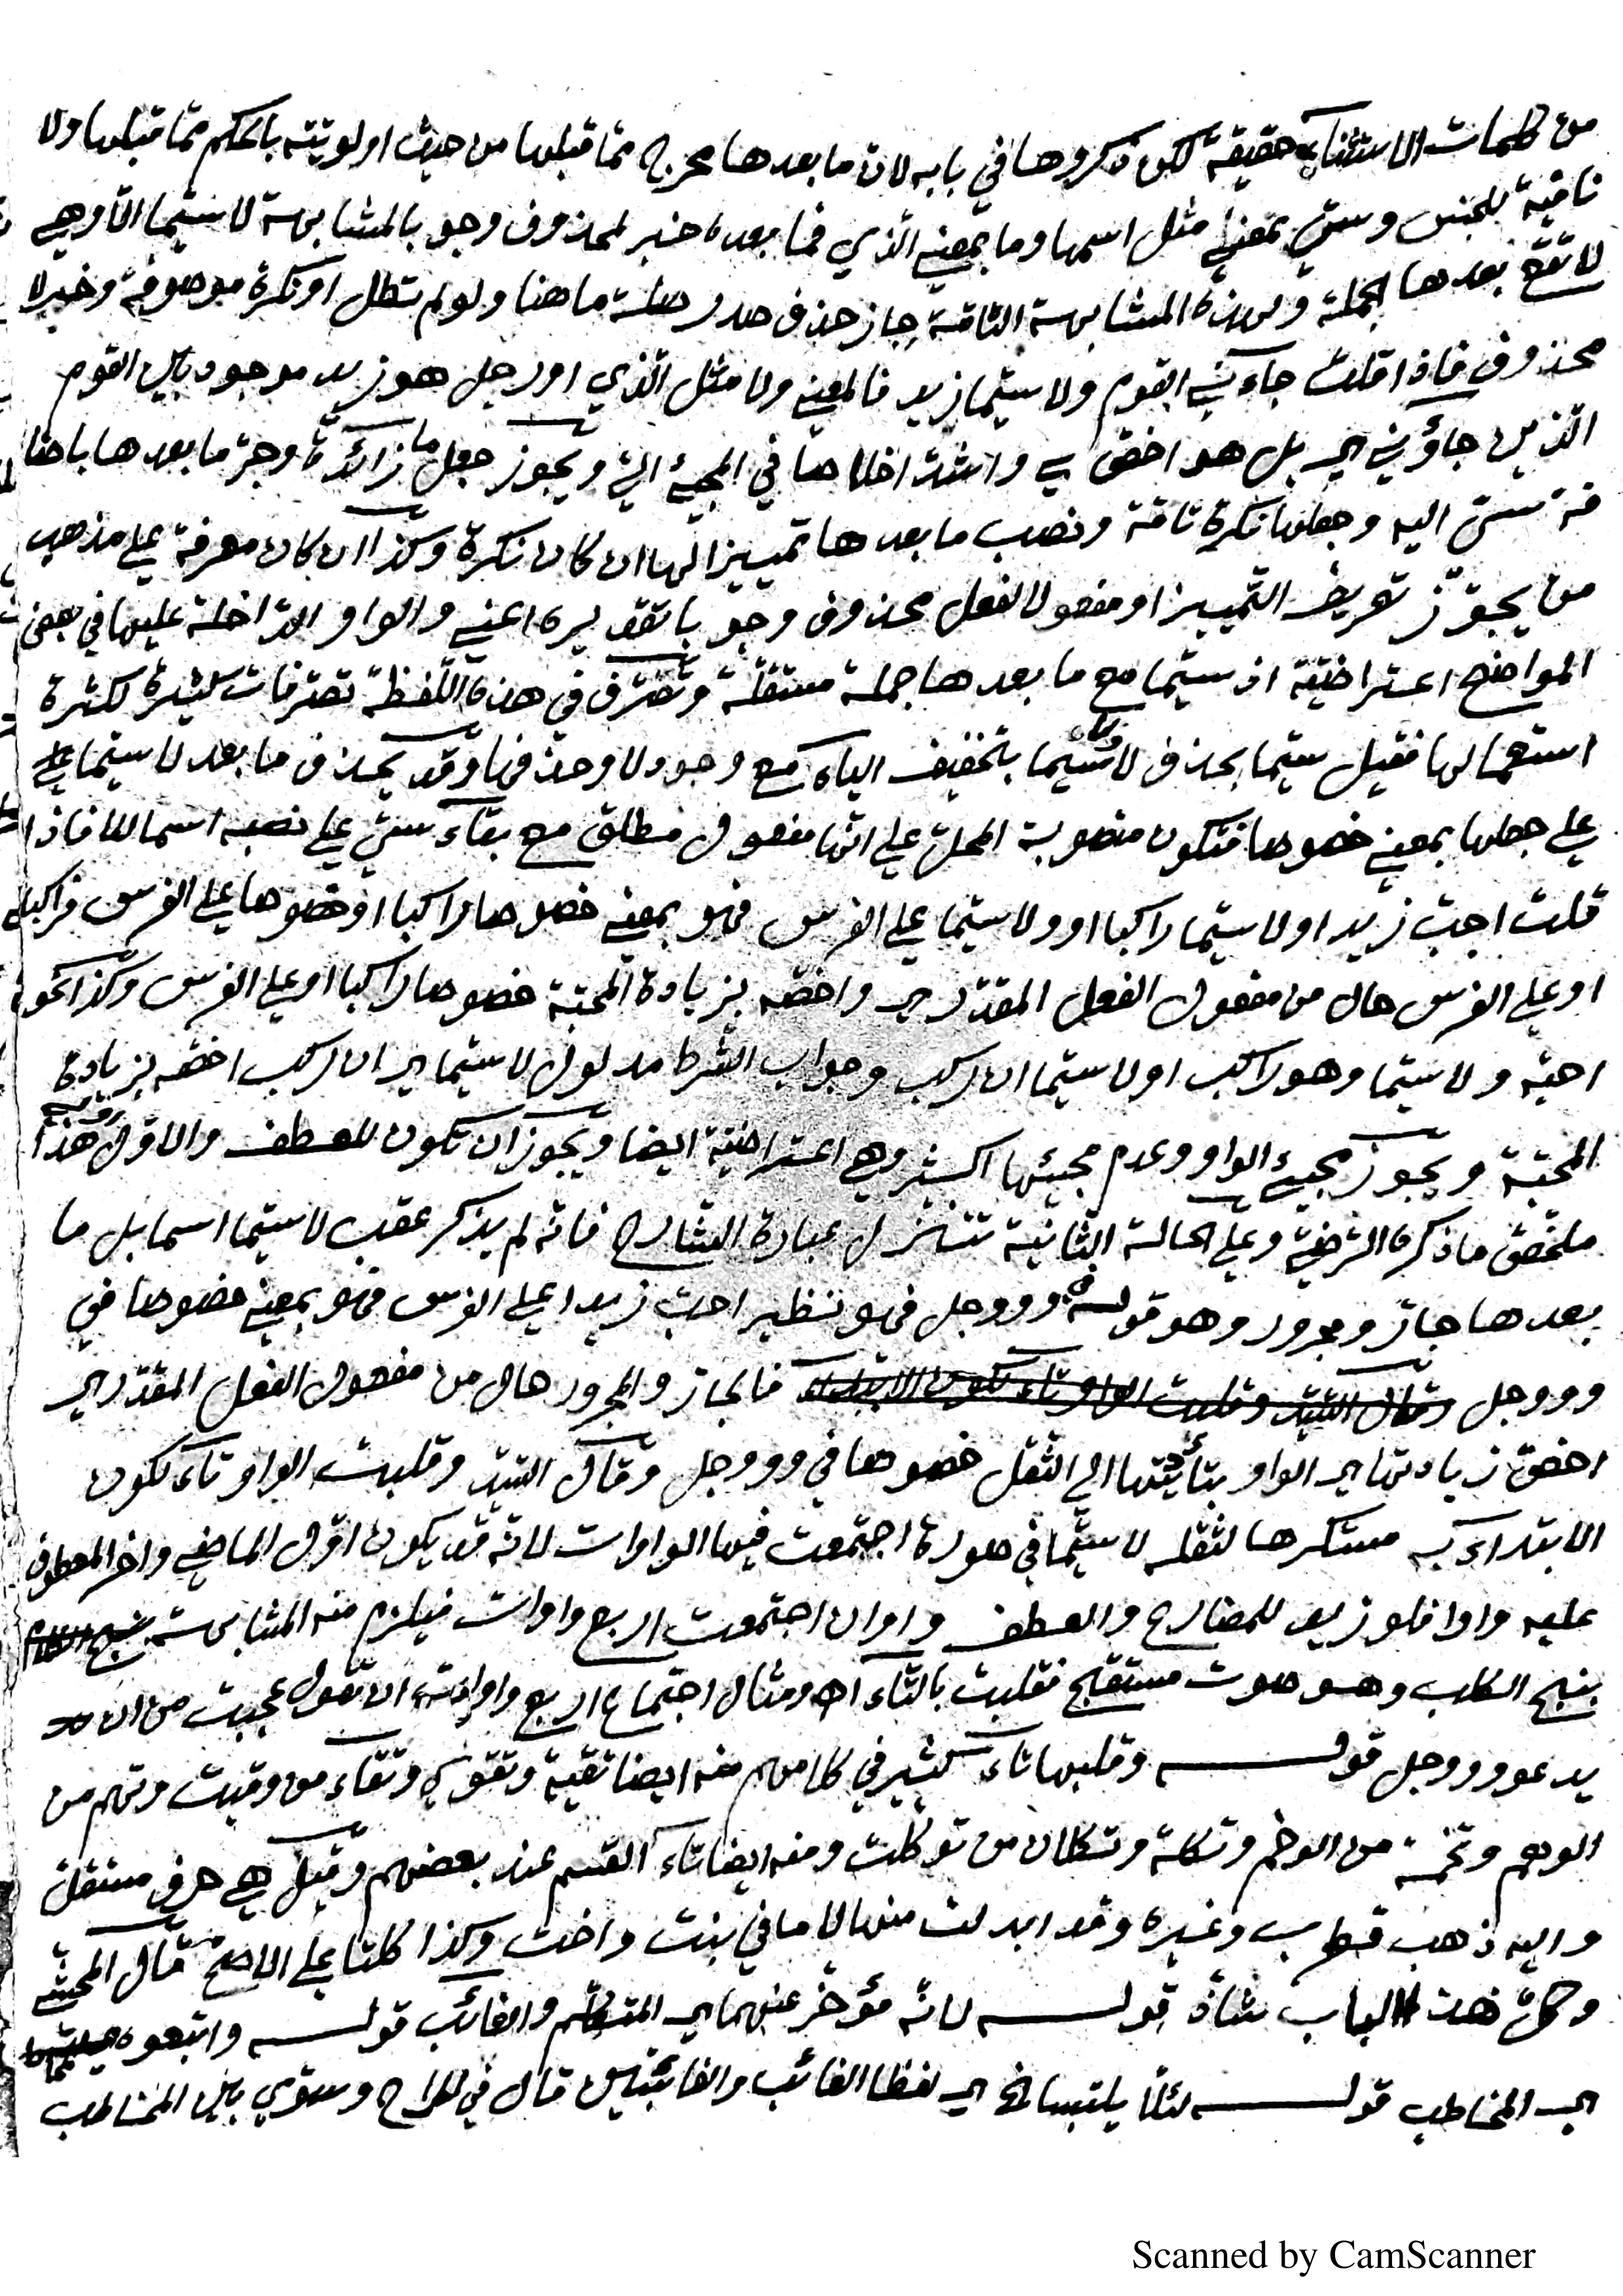 من كلمات الاستثناء حقيقة لكن ذكروها في بابه لان ما بعدها مخرج مما قبلها من حيث اولويته بالحكم مما قبلها ولا
نافية للجنس وسيّ بمعنى مثل اسمها وما بمعنى الذي فما بعده خبر لمحذوف وجوبا لمشابهة لا سيّما الّا وهي
لا تقع بعدها الجملة ولهذه المشابهة التامّة جاز حذف صدر صلة ما هنا ولو لم تطل او نكرة موصوفة وخبر لا
محذوف فاذا قلت جاءني القوم ولا سيّما زيد فالمعنى ولا مثل الذي او رجل هو زيد موجود بين القوم
الذين جاؤني اي بل هو اخصّ بي واشدّ اخلاصا في المجيئ اليّ ويجوز جعل ما زائدة وجرّ ما بعدها باضا
فة سيّ اليه وجعلها نكرة تامّة ونصب ما بعدها تمييزا لها ان كان نكرة وكذا ان كان معرفة على مذهب
من يجوّز تعريف التمييز او مفعولا لفعل محذوف وجوبا تقديره اعني والواو الداخلة عليها في بعض
المواضع اعتراضيّة اذ سيّما مع ما بعدها جملة مستقلّة وتصرّف في هذه اللفظة تصرّفات كثيرة لكثرة
استعمالها فقيل سيّما بحذف لا ولا سيما بتخفيف الياء مع وجود لا وحذفها وقد يحذف ما بعد لا سيّما على
على جعلها بمعنى خصوصا فتكون منصوبة المحلّ على انّها مفعول مطلق مع بقاء سيّ على نصبه اسما للا فاذا
قلت احبّ زيدا ولا سيّما راكبا او ولا سيّما على الفرس فهو بمعنى خصوصا راكبا او خصوصا على الفرس فراكبا
او على الفرس حال من مفعول الفعل المقدّر اي واخصّه بزيادة المحبّة خصوصا راكبا او على الفرس وكذا نحو
احبّه ولا سيّما وهو راكب او لا سيّما ان ركب وجواب الشرط مدلول لا سيّما اي ان ركب اخصّه بزيادة
المحبّة ويجوز مجيئ الواو وعدم مجيئها اكثر وهي اعتراضيّة ايضا ويجوز ان تكون للعطف والاوّل هذا
ملخّص ما ذكره الرضيّ وعلى الحالة الثانية تتنزل عبارة الشارح فانّه لم يذكر عقب لا سيّما اسما بل ما
بعدها جارّ ومجرور وهو قوله في وووجل فهو نظير احبّ زيدا على الفرس فهو بمعنى خصوصا في
وووجل وقال السيّد وقلبت الواو تاء لكون الابتداء فالجارّ والمجرور حال من مفعول الفعل المقدّر اي
اخصّ زيادتها اي الواو بتأديتها الى الثقل خصوصا في وووجل وقال السيّد وقلبت الواو تاء لكون
الابتداء به مستكرها لثقله لا سيّما في صورة اجتمعت فيها الواوات لانّه قد يكون اوّل الماضي واخر المعطوف
عليه واوا فلو زيد للمضارع والعطف واوان اجتمعت اربع واوات فيلزم منه المشابهة
بنبح الكلب وهو صوت مستقبح فقلبت بالتاء اه ومثال اجتماع اربع واوات ان تقول عجبت من ان
يدعو وووجل قوله وقلبها تاء كثير في كلامهم منه ايضا تقية وتقوى وتقاء من وقيت وتهم من
الوهم وتخمة من الوخم وتكلة وتكلان من توكلت ومنه ايضا تاء القسم عند بعضهم وقيل هي حرف مستقلّ
واليه ذهب قطرب وغيره وقد ابدلت منها لاما في بنت واخت وكذا كلتا على الاصحّ قال المحشّي
الباب شاذّ قوله لانّه مؤخّر عنهما اي المتكلّم والغائب قوله واتبعوه
اي المخاطب قوله لئلّا يلتبسا الخ اي لفظا الغائب والغائبتين قال في المراح وسوّي بين المخاطب
Scanned by CamScanner